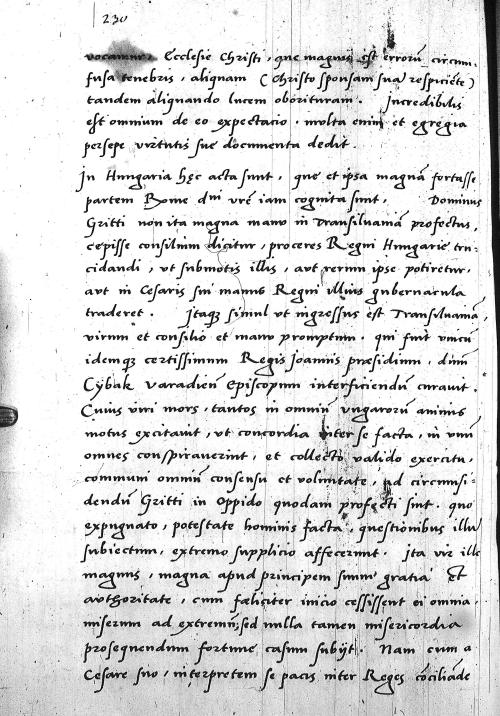 230
Ecclesie Christi, que magnis est erroru͂ circum-
fusa tenebris, aliquam (Christo sponsam sua͂ respicie͂te)
tandem aliquando lucem oborituram. Incredibilis
est omnium de eo expectacio. molta enim et egregia
persepe virtutis sue documenta dedit.
In Hungaria hęc acta sunt, que et ipsa magna͂ fortasse
partem Rome dni vre͂ iam cognita sunt. Dominus
Gritti non ita magna manu in Transiluania͂ profectus,
cepisse consilium dicitur, proceres Regni Hungarie tru-
cidandi, vt submotis illis, aut rerum ipse potiretur,
aut in Cesaris sui manus Regni illius gubernacula
traderet. Itaq; simul vt ingressus est Transiluania͂,
virum et consilio et manu promptum, qui fuit vnicu͂
idemq; certissimum Regis Joannis præsidium, dnm
Cybak Varadien͂ Episcopum interficiendu͂ curauit.
Cuius viri mors, tantos in omniu͂ vngaroru͂ animis
motus excitauit, vt concordia inter se facta, in vnu͂
omnes conspirauerint, et collecto valido exercitu,
communi omniu͂ consensu et voluntate, ad circumsi-
dendu͂ Gritti in Oppido quodam profecti sint. quo
expugnato, potestate hominis facta, questionibus illu͂
subiectum, extremo supplicio affecerunt. Ita vir ille
magnus, magna apud principem suum gratia Et
authoritate, cum fæliciter inicio cessissent ei omnia
miserum ad extremu͂, sed nulla tamen misericordia
prosequendum fortune casum subijt. Nam cum a
Cesare suo, interpretem se pacis inter Reges co͂cilia͂de